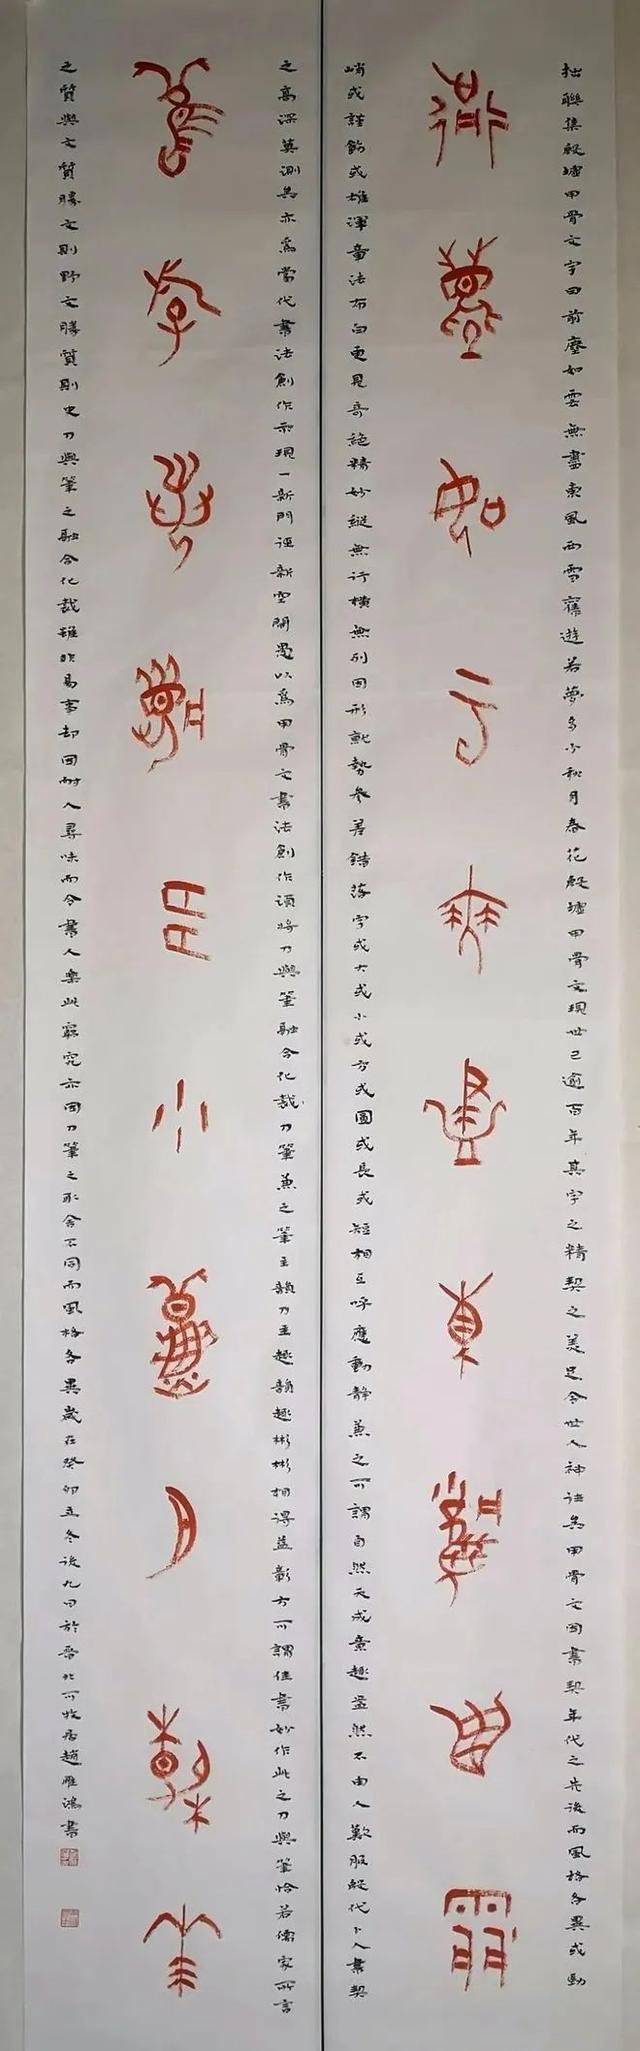 拙聯集殷墟甲骨文字曰前塵如雲無盡東風西雪舊遊若夢多少秋月春花殷墟甲骨文現世已逾百年其字之精契之美足令世人神往焉甲骨文因書契年代之先後而風格各異或勁
前塵如雲無盡東風西雪
峭或謹飭或雄渾章法布白更見奇絕精妙縱無行橫無列因形就勢參差錯落字或大或小或方或圓或長或短相互呼應動靜兼之可謂自然天成意趣盎然不由人歎服殷代卜人書契
之高深莫測焉亦為當代書法創作示現一新門徑新空間愚以為甲骨文書法創作須將刀與筆融合化裁刀筆兼之筆主韻刀主趣韻趣彬彬相得益彰方可謂佳書妙作此之刀與筆恰若儒家所言
舊遊若夢多少舊月春花
之質與文質勝文則野文勝質則史刀與筆之融合化裁雖非易事却因耐人尋味而今書人樂此窮究亦因刀筆之取舍不同而風格各異歲在癸卯立冬後九日於晉北可牧居趙雁鴻書